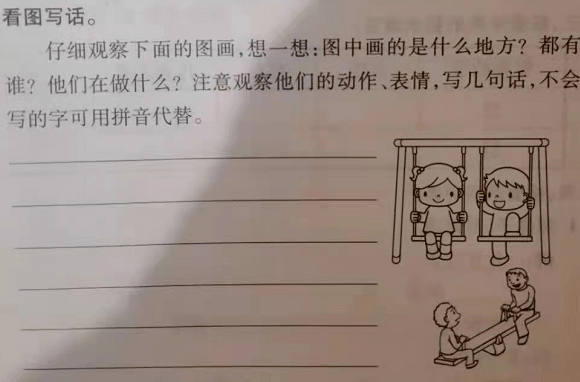 看图写话。
仔细观察下面的图画,想一想:图中画的是什么地方?都有
谁?他们在做什么?注意观察他们的动作、表情,写几句话,不会
写的字可用拼音代替。